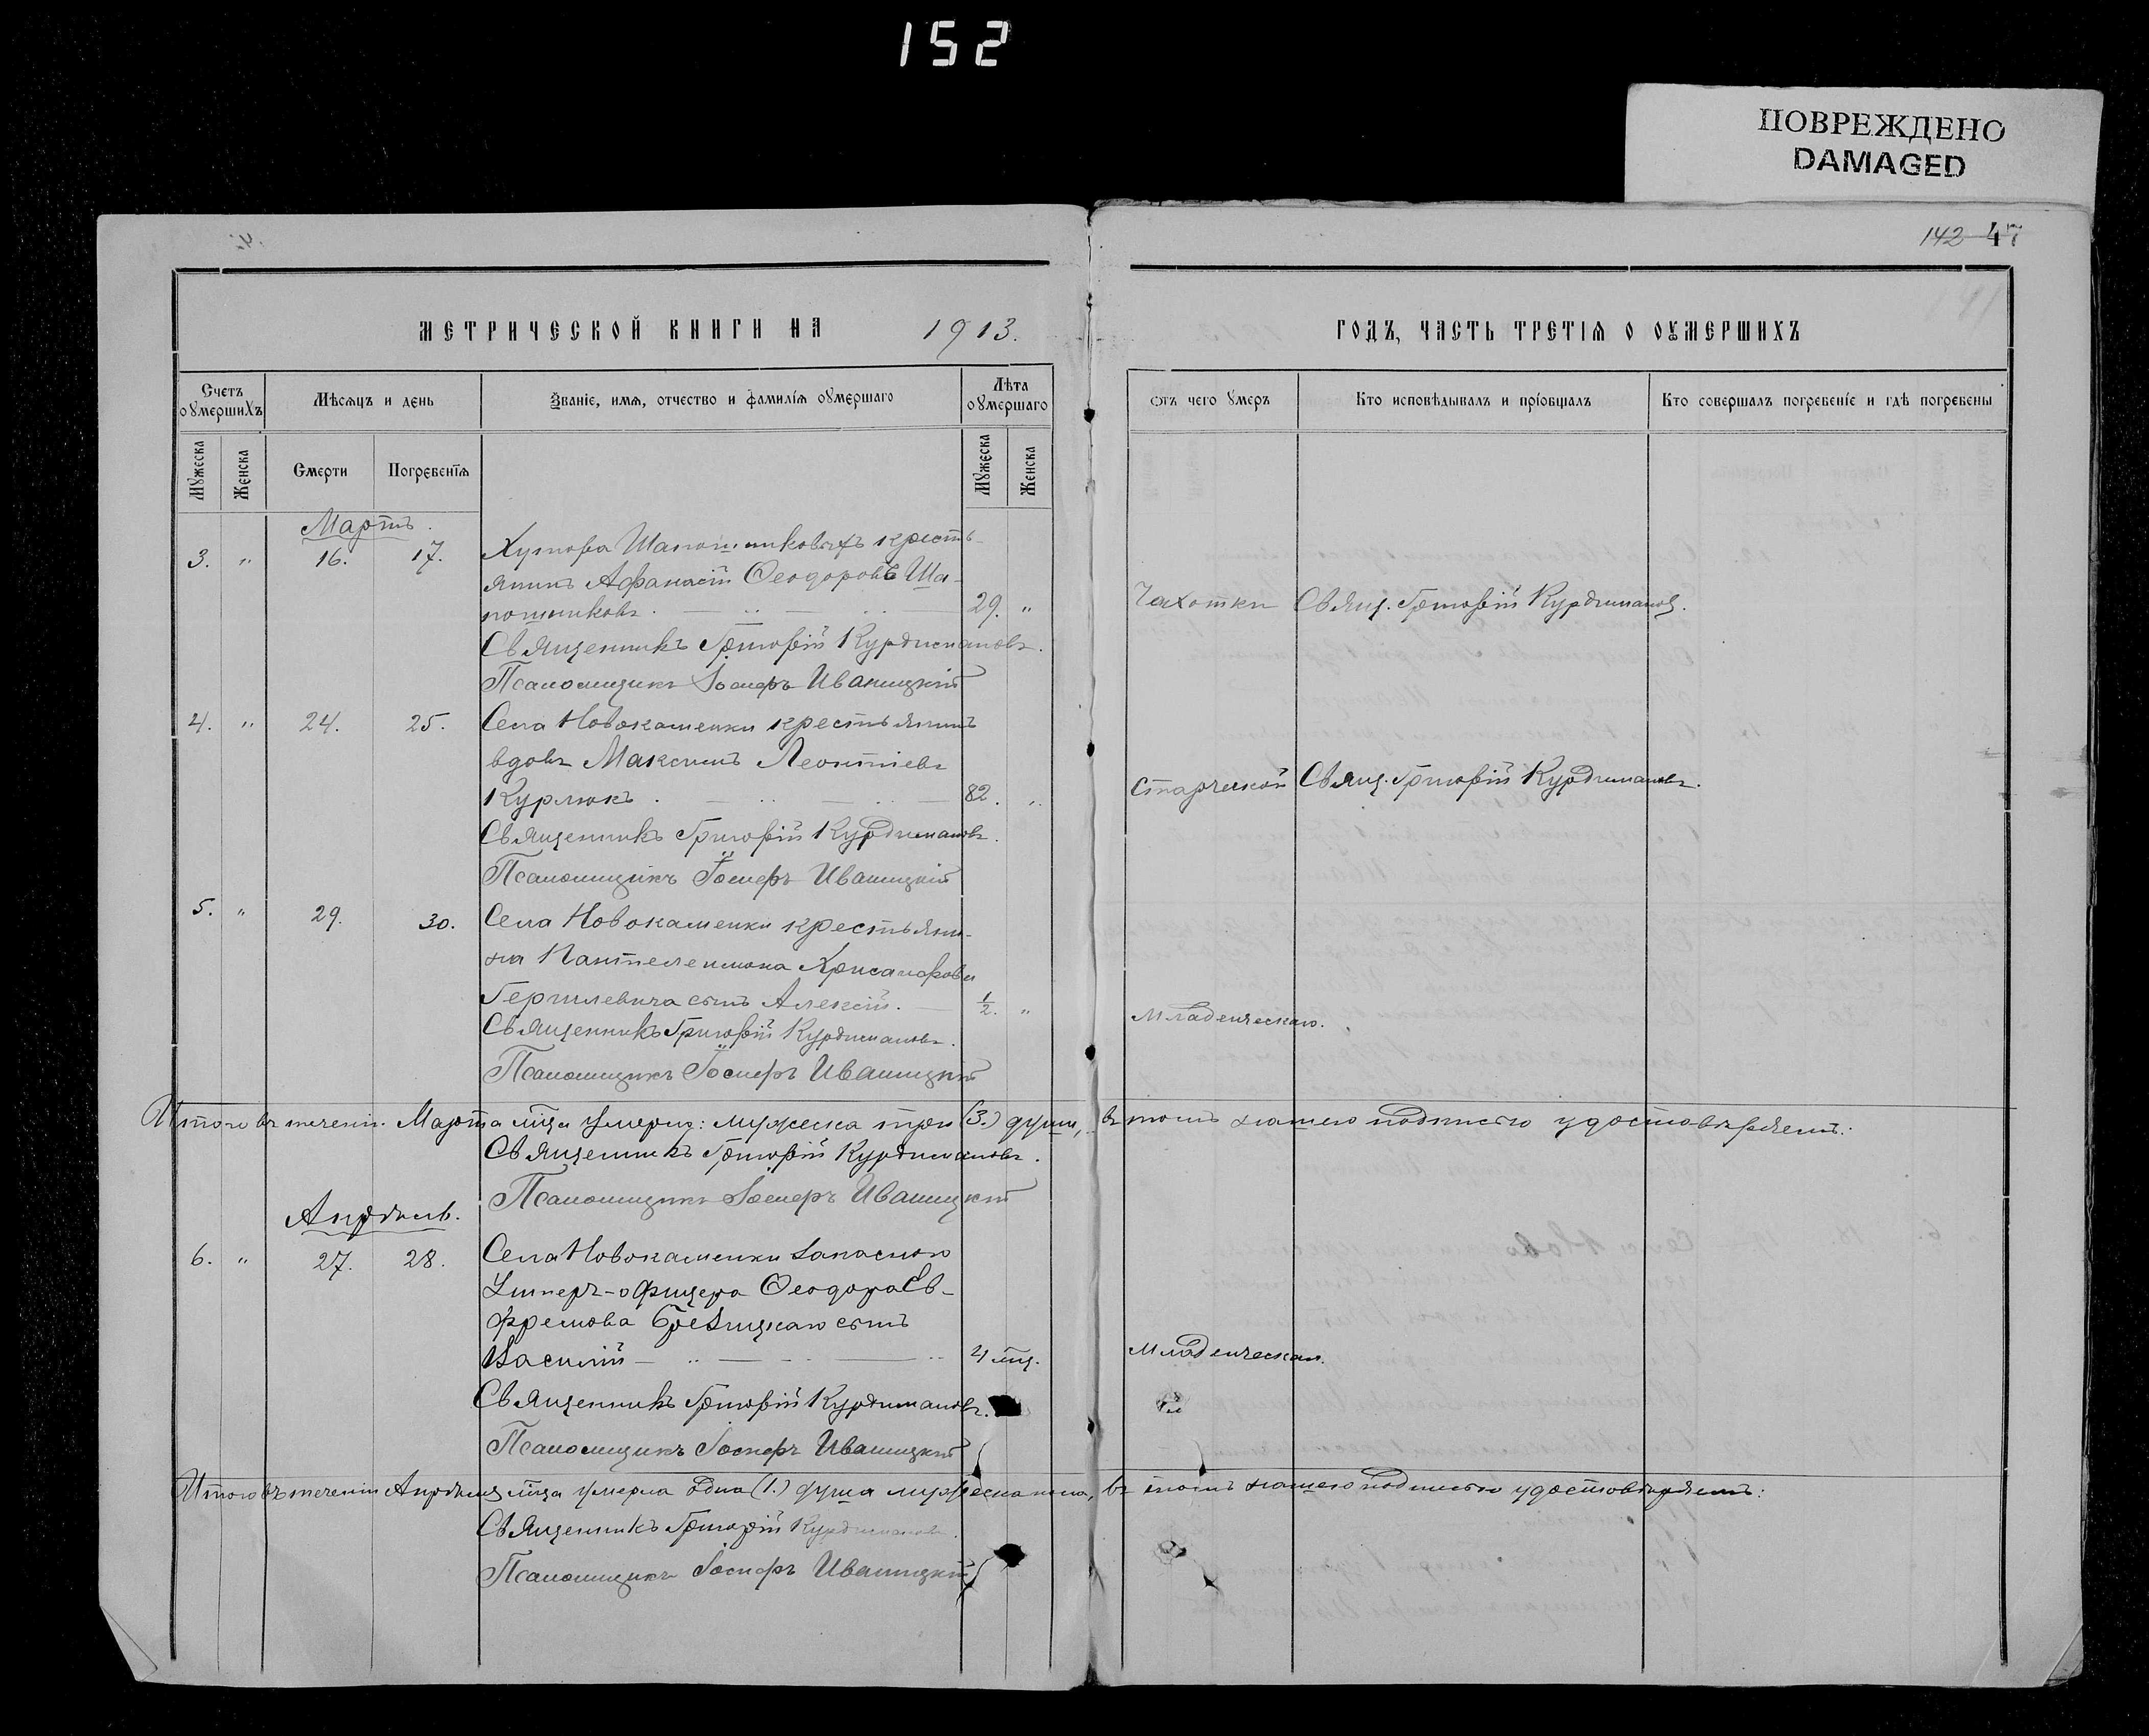 152
ПОВРЕЖДЕНО
DAMAGED
142 47
МЕТРИЧЕСКОЙ КНИГИ НА 1913.
ГОДЪ, ЧАСТЬ ТРЕТІѦ О ОУМЕРШИХЪ
Счетъ оумершихъ
Мѣсяцъ и день
Званіе, имя, отчество и фамилія оумершаго
Лѣта оумершаго
отъ чего умеръ
Кто исповѣдывалъ и пріобщалъ
Кто совершалъ погребеніе и гдѣ погребены
Мужеска
Женска
Смерти
Погребенія
Мужеска
Женска
Мартъ.
3. " 16. 17. Хутора Шапошниковыхъ кресть-
янинъ Афанасій Ѳеодоровъ Ша-
пошниковъ. 29. " Чахотки Свящ. Григорій Курдимановъ.
Священникъ Григорій Курдимановъ.
Псаломщикъ Іосифъ Иваницкій
4. " 24. 25. Села Новокаменки крестьянинъ
вдовъ Максимъ Леонтіевъ
Курлюкъ. 82. " Старческой Свящ. Григорій Курдимановъ.
Священникъ Григорій Курдимановъ.
Псаломщикъ Іосифъ Иваницкій
5. " 29. 30. Села Новокаменки крестьяни-
на Пантелеимона Хрисанфова
сынъ Алексій. 1/2. " Младенческаго.
Священникъ Григорій Курдимановъ.
Псаломщикъ Іосифъ Иваницкій
Итого въ теченіи Марта мѣца умерло: мужеска три (3.) души, въ томъ нашею подписью удостовѣряемъ:
Священникъ Григорій Курдимановъ.
Псаломщикъ Іосифъ Иваницкій
Апрѣль.
6. " 27. 28. Села Новокаменки запасного
Унтеръ-офицера Ѳеодора Ев-
фремова сынъ
Василій 4 мѣц. Младенческаго.
Священникъ Григорій Курдимановъ.
Псаломщикъ Іосифъ Иваницкій
Итого въ теченіи Апрѣля мѣца умерла одна (1.) душа мужеска пола, въ томъ нашею подписью удостовѣряемъ:
Священникъ Григорій Курдимановъ.
Псаломщикъ Іосифъ Иваницкій